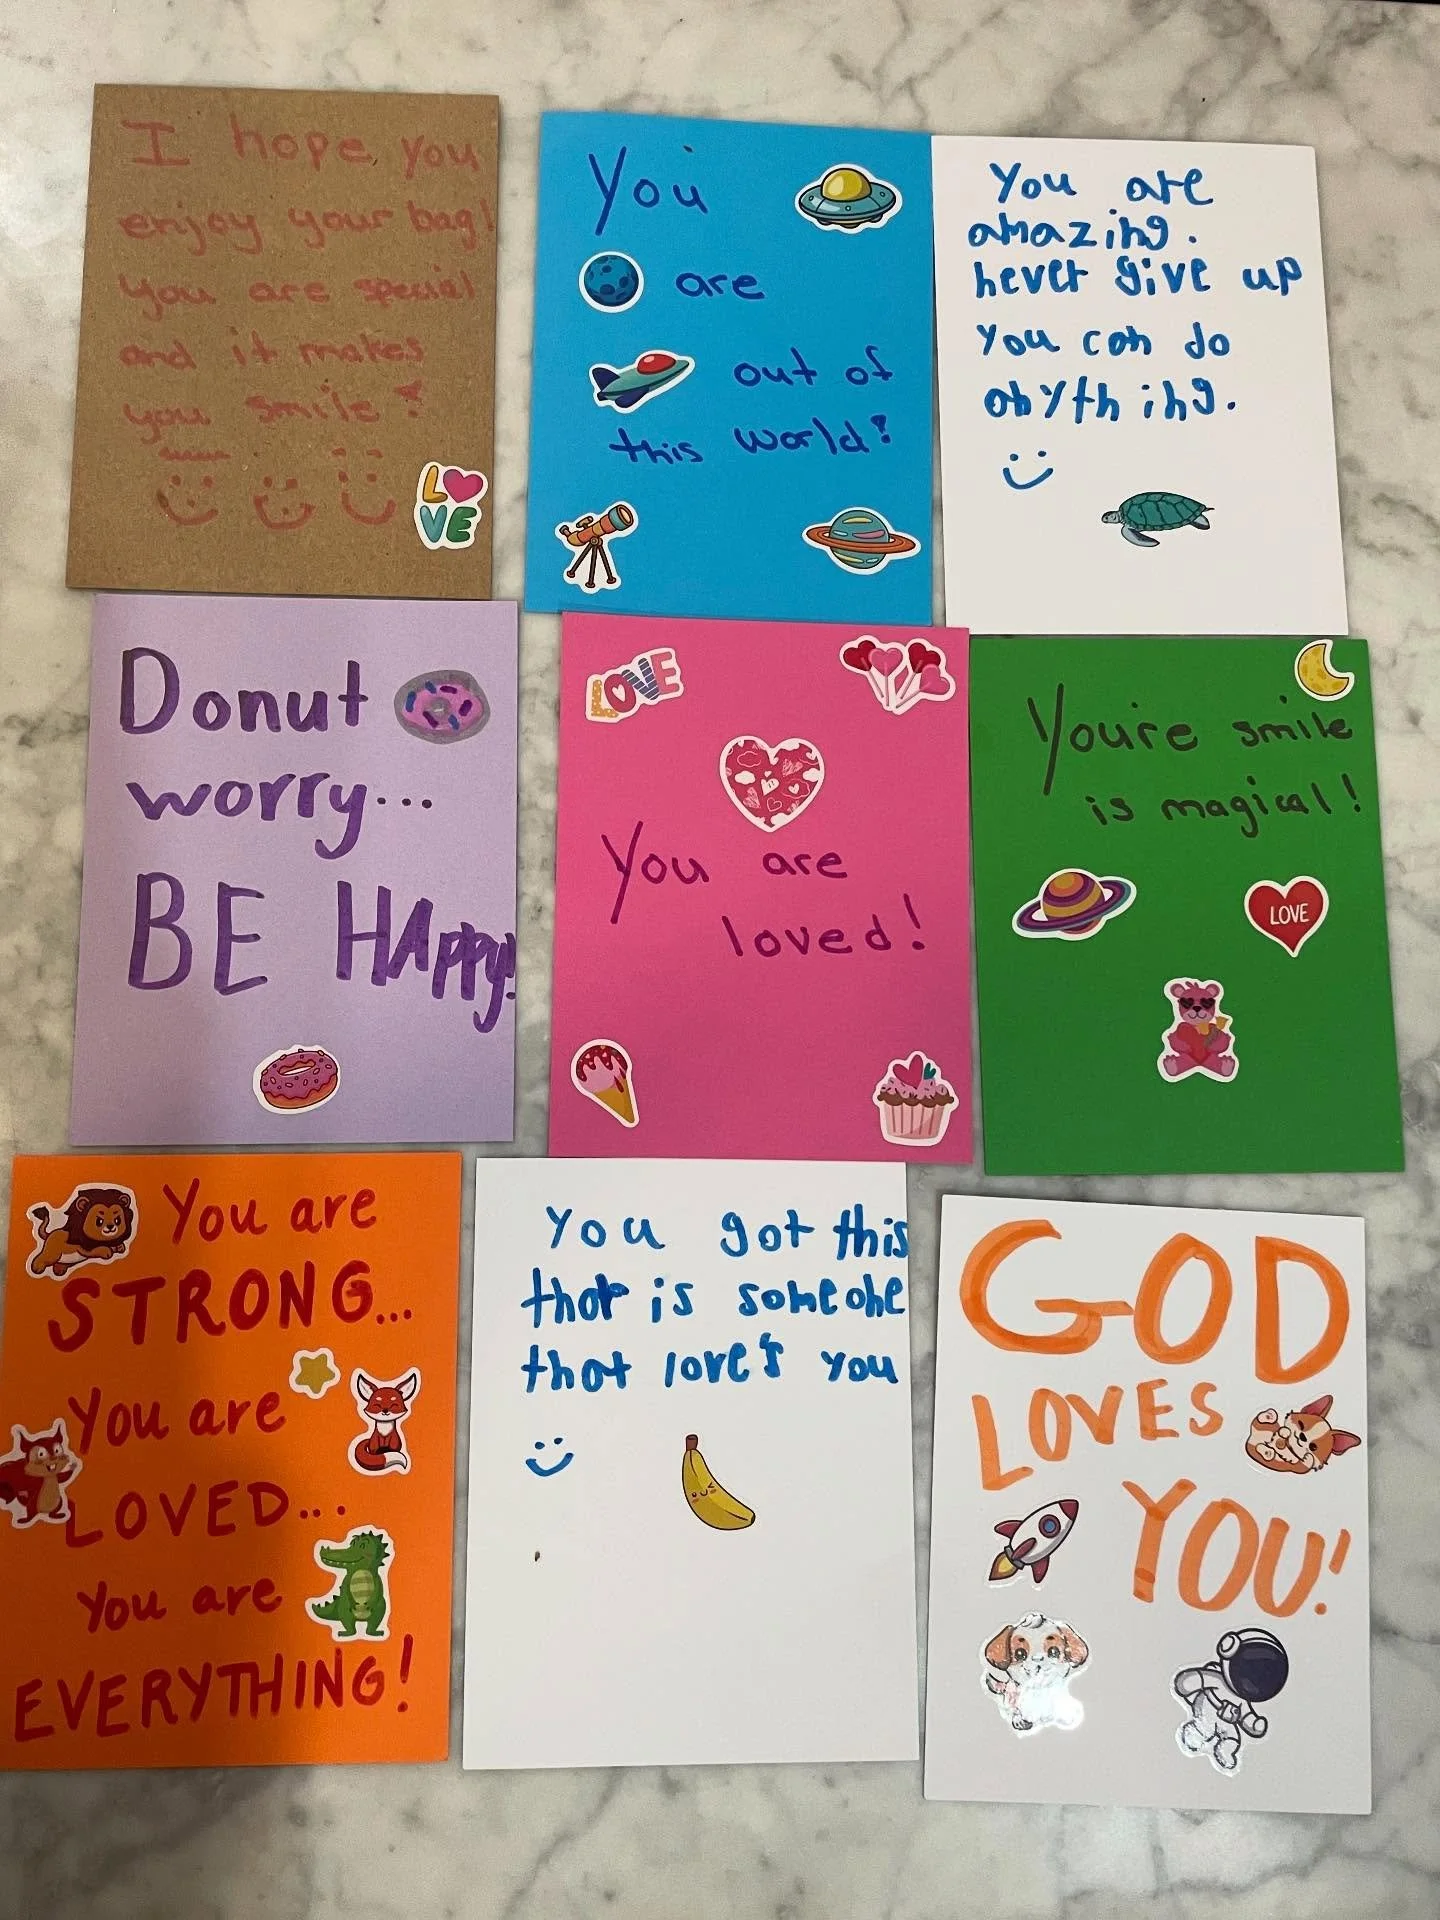 I hope you
enjoy your bag!
you are special
and it makes
you smile!
LOVE
You
are
out of
this world!
You are
amazing.
never give up
You can do
anything.
Donut
worry...
BE HAppy!
LOVE
You are
loved!
You're smile
is magical!
LOVE
You are
STRONG...
You are
LOVED...
You are
EVERYTHING!
You got this
that is someone
that love's you
GOD
LOVES
YOU!